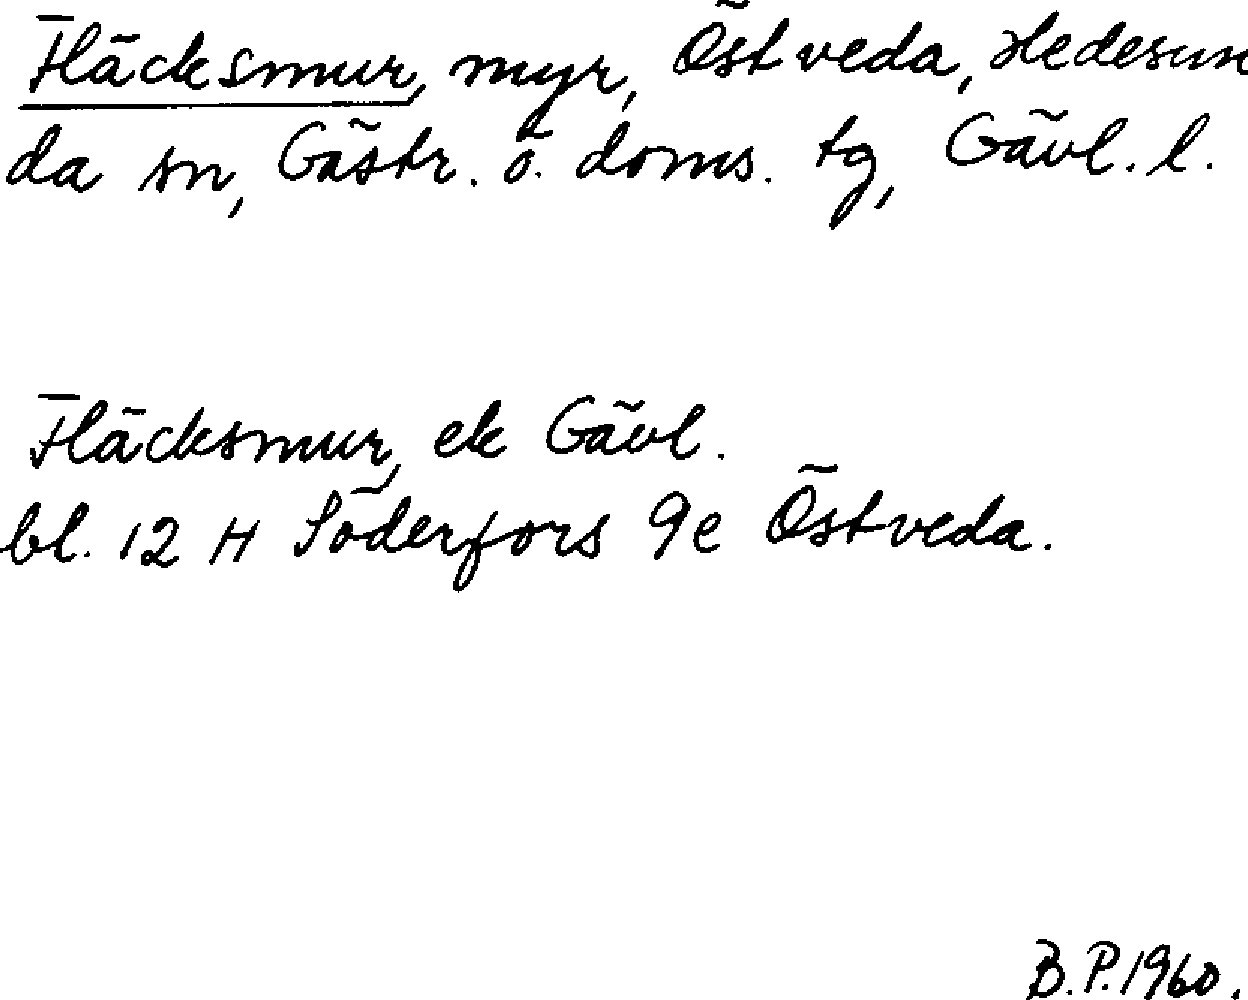 Fläcksmur, myr, Östveda, Hedesun
da sn, Gästr. ö. doms. tg, Gävl. l.
Fläcksmur, ek Gävl.
bl. 12 H Söderfors 9e Östveda.
B.P. 1960.